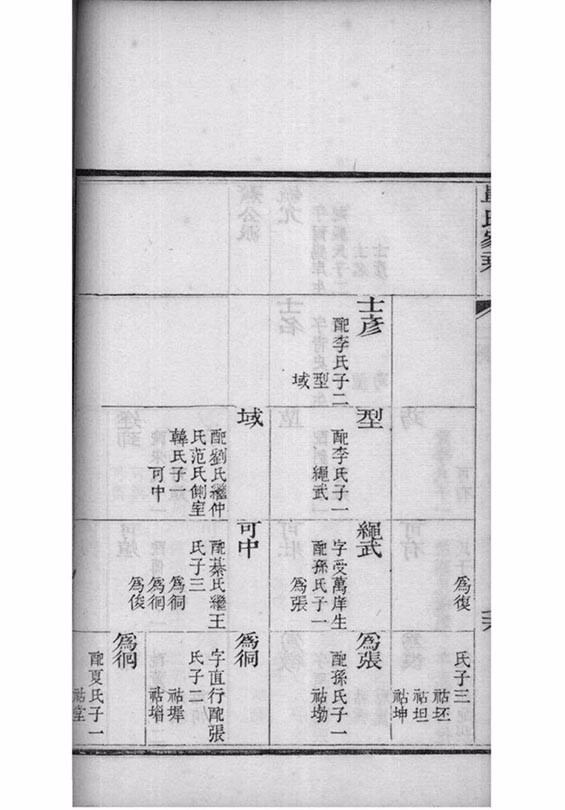 氏家乘
士彥
配李氏子二
型
域
型
配李氏子一
繩武
域
配劉氏繼仲
氏范氏側室
韓氏子一
可中
爲復
繩武
字受萬庠生
配孫氏子一
爲張
可中
配綦氏繼王
氏子三
爲侗
爲徊
爲俊
氏子三
祜坯
祜坦
祜坤
爲張
配孫氏子一
爲侗
字直行配張
氏子二
祜墀
祜堦
爲徊
配夏氏子一
祜堂